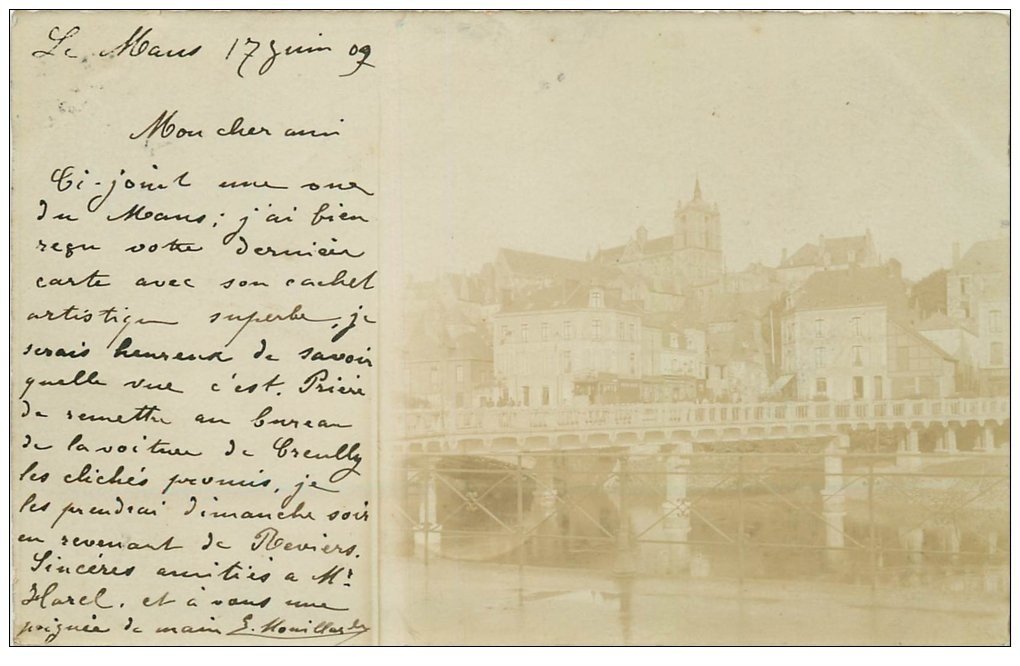 Le Mans 17 Juin 09
Mon cher ami
Ci-joint une vue
du Mans; j'ai bien
reçu votre dernière
carte avec son cachet
artistique superbe, je
serais heureux de savoir
quelle vue c'est. Prière
de remettre au bureau
de la voiture de Creully
les clichés promis, je
les prendrai dimanche soir
en revenant de Reviers.
Sincères amitiés a Mr
Harel. et à vous une
poignée de main